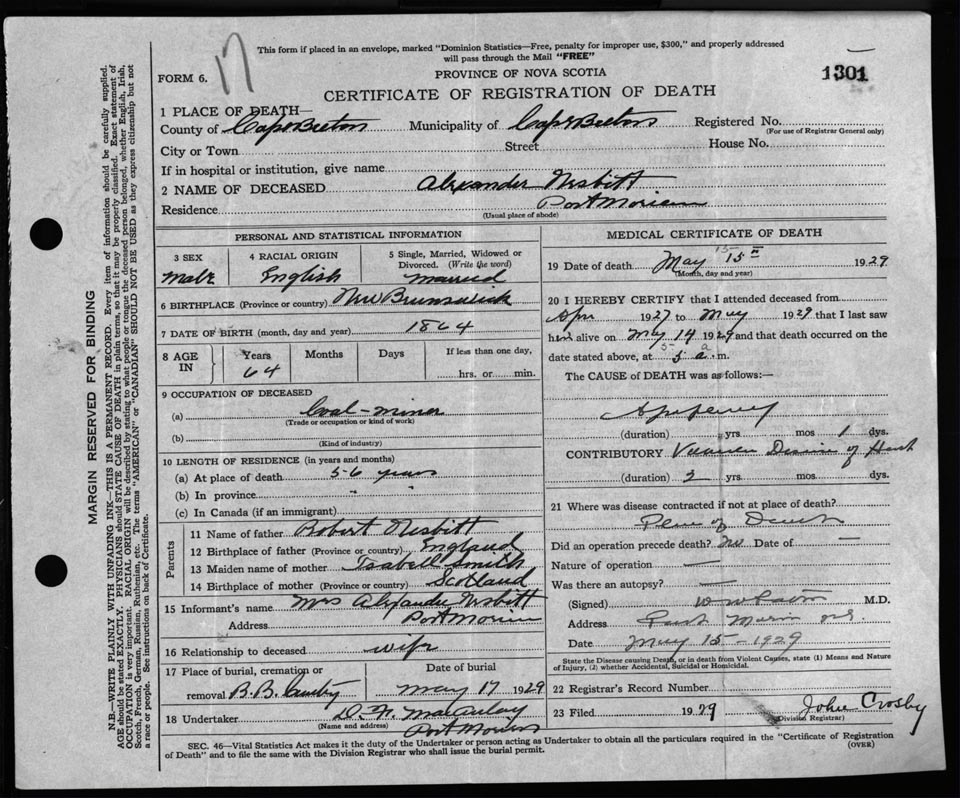 This form if placed in an envelope, marked "Dominion Statistics—Free, penalty for improper use, $300," and properly addressed
will pass through the Mail "FREE"
17
FORM 6.
PROVINCE OF NOVA SCOTIA
1301
CERTIFICATE OF REGISTRATION OF DEATH
1 PLACE OF DEATH—
County of Cape Breton Municipality of Cape Breton Registered No.
(For use of Registrar General only)
City or Town Street House No.
If in hospital or institution, give name
2 NAME OF DECEASED Alexander Nesbitt
Residence Port Morien
(Usual place of abode)
PERSONAL AND STATISTICAL INFORMATION
3 SEX 4 RACIAL ORIGIN 5 Single, Married, Widowed or
Divorced. (Write the word)
Male English Married
6 BIRTHPLACE (Province or country) New Brunswick
7 DATE OF BIRTH (month, day and year) 1864
8 AGE IN Years Months Days If less than one day,
64 hrs. or min.
9 OCCUPATION OF DECEASED
(a) Coal-miner
(Trade or occupation or kind of work)
(b)
(Kind of industry)
10 LENGTH OF RESIDENCE (in years and months)
(a) At place of death 56 years
(b) In province " "
(c) In Canada (if an immigrant)
Parents
11 Name of father Robert Nesbitt
12 Birthplace of father (Province or country) England
13 Maiden name of mother Isabell Smith
14 Birthplace of mother (Province or country) Scotland
15 Informant's name Mrs Alexander Nesbitt
Address Port Morien
16 Relationship to deceased wife
17 Place of burial, cremation or Date of burial
removal B.B. May 17 1929
18 Undertaker D. H. MacAulay
(Name and address) Port Morien
MEDICAL CERTIFICATE OF DEATH
19 Date of death May 15 1929
(Month, day and year)
20 I HEREBY CERTIFY that I attended deceased from
Apr 1927 to May 1929 that I last saw
him alive on May 14 1929 and that death occurred on the
date stated above, at 5 a.m.
The CAUSE of DEATH was as follows:—
(duration) yrs. mos 1 dys.
CONTRIBUTORY Disease of Heart
(duration) 2 yrs. mos dys.
21 Where was disease contracted if not at place of death?
Place of Death
Did an operation precede death? No Date of —
Nature of operation —
Was there an autopsy? —
(Signed) M.D.
Address Port Morien N.S.
Date May 15 - 1929
State the Disease causing Death, or in death from Violent Causes, state (1) Means and Nature
of Injury, (2) whether Accidental, Suicidal or Homicidal.
22 Registrar's Record Number
23 Filed 1929 John Crosby
(Division Registrar)
SEC. 46—Vital Statistics Act makes it the duty of the Undertaker or person acting as Undertaker to obtain all the particulars required in the "Certificate of Registration
of Death" and to file the same with the Division Registrar who shall issue the burial permit.
(OVER)
MARGIN RESERVED FOR BINDING
N.B.—WRITE PLAINLY WITH UNFADING INK—THIS IS A PERMANENT RECORD. Every item of information should be carefully supplied.
AGE should be stated EXACTLY. PHYSICIANS should STATE CAUSE OF DEATH in plain terms, so that it may be properly classified. Exact statement of
OCCUPATION is very important. RACIAL ORIGIN will be described by stating to what people or tongue the deceased person belonged, whether English, Irish,
Scotch, French, German, Russian, Ruthenian, etc. The terms "AMERICAN" or "CANADIAN" SHOULD NOT BE USED as they express citizenship but not
a race or people. See instructions on back of Certificate.